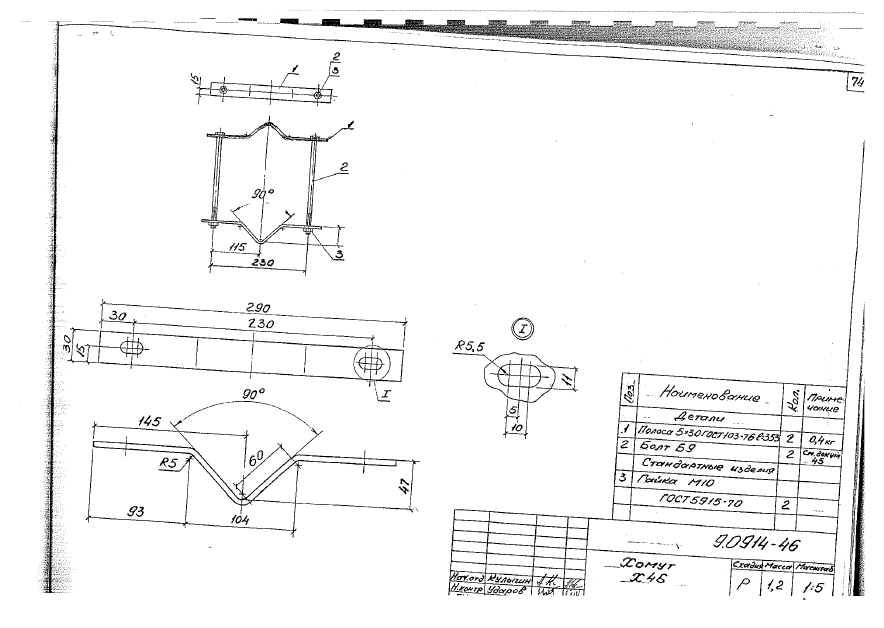 74
15
1
2
3
1
2
90°
3
115
230
290
30
230
30
15
I
90°
145
R5
60
47
93
104
I
R5,5
11
5
10
Поз. Наименование Кол. Приме-
чание
Детали
1 Полоса 5×30 ГОСТ 103-76 ℓ=353 2 0,4кг
2 Болт Б9 2 См. докум.
45
Стандартные изделия
3 Гайка М10
ГОСТ 5915-70 2
9.0914-46
Хомут
Х46
Стадия Масса Масштаб
Р 1,2 1:5
Нач.отд Кулыгин
Н.контр Ударов